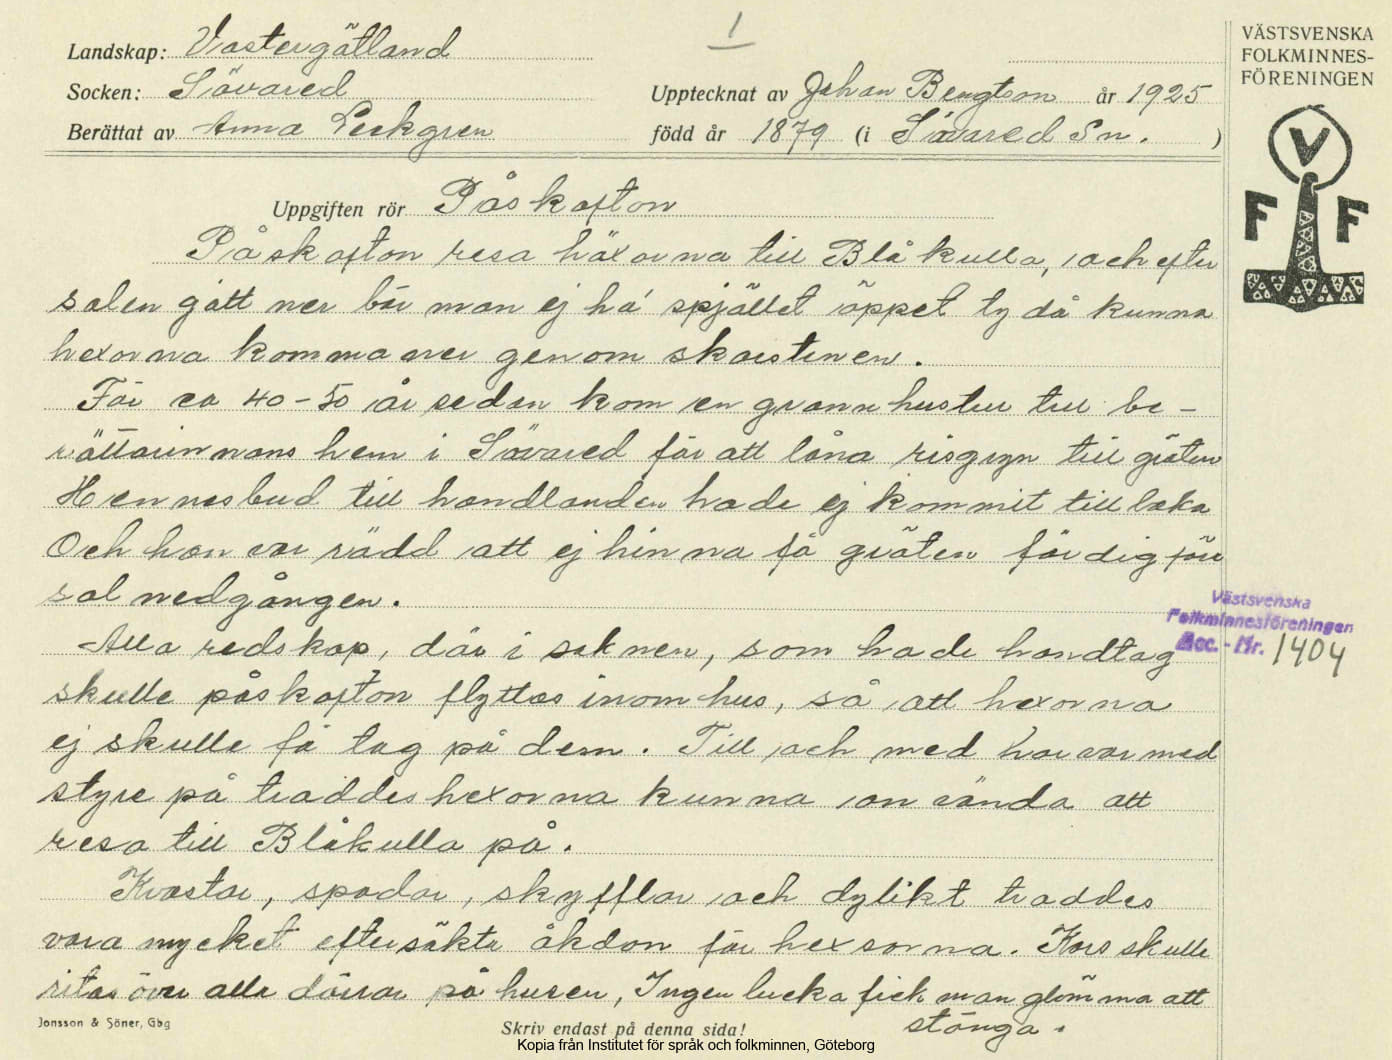 1
VÄSTSVENSKA
FOLKMINNES-
FÖRENINGEN
V
F F
Landskap: Västergötland
Socken: Sövared
Upptecknat av Johan Bengtson år 1925
Berättat av Anna Leekgren
född år 1879 (i Sövared Sn. )
Uppgiften rör Påskafton
Påskafton resa häxorna till Blåkulla, och efter
solen gått ner bör man ej ha spjället öppet ty då kunna
hexorna komma ner genom skorstenen.
För ca 40-50 år sedan kom en grannhustru till be-
rättarinnans hem i Sövared för att låna risgryn till gröten
Hennes bud till handlanden hade ej kommit tillbaka
Och hon var rädd att ej hinna få gröten färdig före
solnedgången.
Alla redskap, där i socknen, som hade handtag
skulle påskafton flyttas inomhus, så att hexorna
ej skulle få tag på dem. Till och med harvar med
styre på troddes hexorna kunna använda att
resa till Blåkulla på.
Kvastar, spadar, skyfflar och dylikt troddes
vara mycket eftersökta åkdon för hexsorna. Kors skulle
ritas över alla dörrar på husen, Ingen lucka fick man glömma att
stänga.
Västsvenska
Folkminnesföreningen
Acc.-Nr. 1404
Jonsson & Söner, Gbg
Skriv endast på denna sida!
Kopia från Institutet för språk och folkminnen, Göteborg